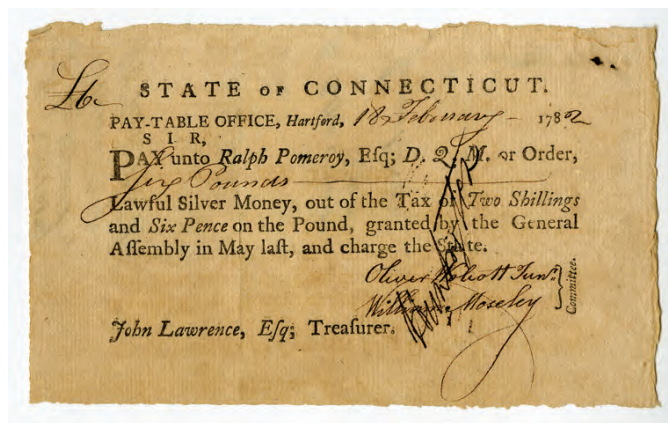 £6
STATE OF CONNECTICUT.
PAY-TABLE OFFICE, Hartford, 18 February 1782
SIR,
PAY unto Ralph Pomeroy, Eſq; D. Q. M. or Order,
Six Pounds
Lawful Silver Money, out of the Tax of Two Shillings
and Six Pence on the Pound, granted by the General
Aſſembly in May laſt, and charge the State.
Oliver Wolcott Junr.
William Moseley
Committee.
John Lawrence, Eſq; Treaſurer.